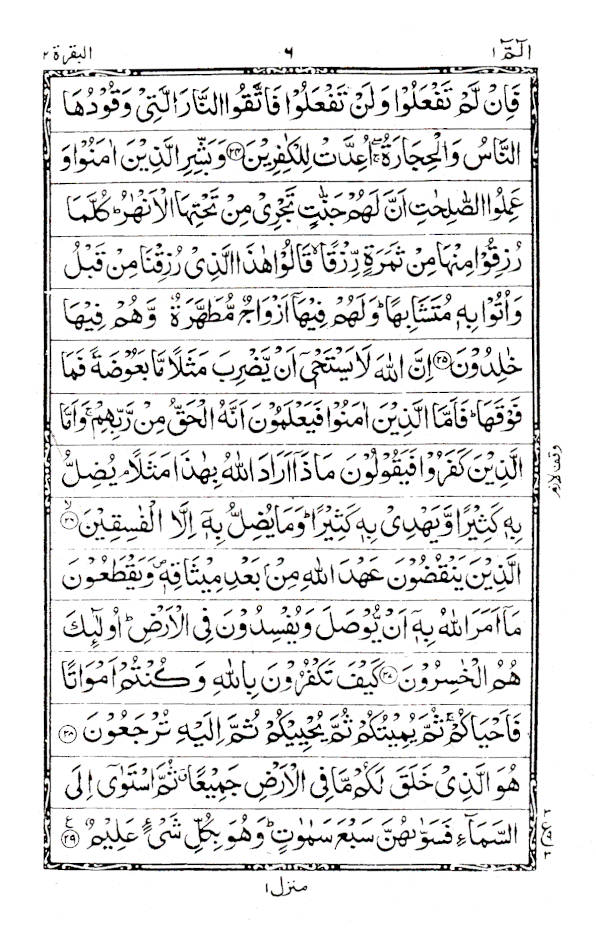 الٓمّٓ ١ ٦ البقرة ٢
فَاِنْ لَّمْ تَفْعَلُوْا وَلَنْ تَفْعَلُوْا فَاتَّقُوا النَّارَ الَّتِیْ وَقُوْدُهَا
النَّاسُ وَالْحِجَارَةُ ۖۚ اُعِدَّتْ لِلْكٰفِرِیْنَ ﴿٢٤﴾ وَبَشِّرِ الَّذِیْنَ اٰمَنُوْا وَ
عَمِلُوا الصّٰلِحٰتِ اَنَّ لَهُمْ جَنّٰتٍ تَجْرِیْ مِنْ تَحْتِهَا الْاَنْهٰرُ ؕ كُلَّمَا
رُزِقُوْا مِنْهَا مِنْ ثَمَرَةٍ رِّزْقًا ۙ قَالُوْا هٰذَا الَّذِیْ رُزِقْنَا مِنْ قَبْلُ
وَاُتُوْا بِهٖ مُتَشَابِهًا ؕ وَلَهُمْ فِیْهَاۤ اَزْوَاجٌ مُّطَهَّرَةٌ وَّهُمْ فِیْهَا
خٰلِدُوْنَ ﴿٢٥﴾ اِنَّ اللّٰهَ لَا یَسْتَحْیٖۤ اَنْ یَّضْرِبَ مَثَلًا مَّا بَعُوْضَةً فَمَا
فَوْقَهَا ؕ فَاَمَّا الَّذِیْنَ اٰمَنُوْا فَیَعْلَمُوْنَ اَنَّهُ الْحَقُّ مِنْ رَّبِّهِمْ ۚ وَاَمَّا
الَّذِیْنَ كَفَرُوْا فَیَقُوْلُوْنَ مَاذَاۤ اَرَادَ اللّٰهُ بِهٰذَا مَثَلًا ۘ یُضِلُّ
وقف لازم
بِهٖ كَثِیْرًا وَّیَهْدِیْ بِهٖ كَثِیْرًا ؕ وَمَا یُضِلُّ بِهٖۤ اِلَّا الْفٰسِقِیْنَ ﴿٢٦﴾ ۙ
الَّذِیْنَ یَنْقُضُوْنَ عَهْدَ اللّٰهِ مِنْۢ بَعْدِ مِیْثَاقِهٖ ۪ وَیَقْطَعُوْنَ
مَاۤ اَمَرَ اللّٰهُ بِهٖۤ اَنْ یُّوْصَلَ وَیُفْسِدُوْنَ فِی الْاَرْضِ ؕ اُولٰٓئِكَ
هُمُ الْخٰسِرُوْنَ ﴿٢٧﴾ كَیْفَ تَكْفُرُوْنَ بِاللّٰهِ وَكُنْتُمْ اَمْوَاتًا
فَاَحْیَاكُمْ ۚ ثُمَّ یُمِیْتُكُمْ ثُمَّ یُحْیِیْكُمْ ثُمَّ اِلَیْهِ تُرْجَعُوْنَ ﴿٢٨﴾
هُوَ الَّذِیْ خَلَقَ لَكُمْ مَّا فِی الْاَرْضِ جَمِیْعًا ۗ ثُمَّ اسْتَوٰۤی اِلَی
السَّمَآءِ فَسَوّٰىهُنَّ سَبْعَ سَمٰوٰتٍ ؕ وَهُوَ بِكُلِّ شَیْءٍ عَلِیْمٌ ﴿٢٩﴾ ع
٣
ع ٩
٣
منزل ١